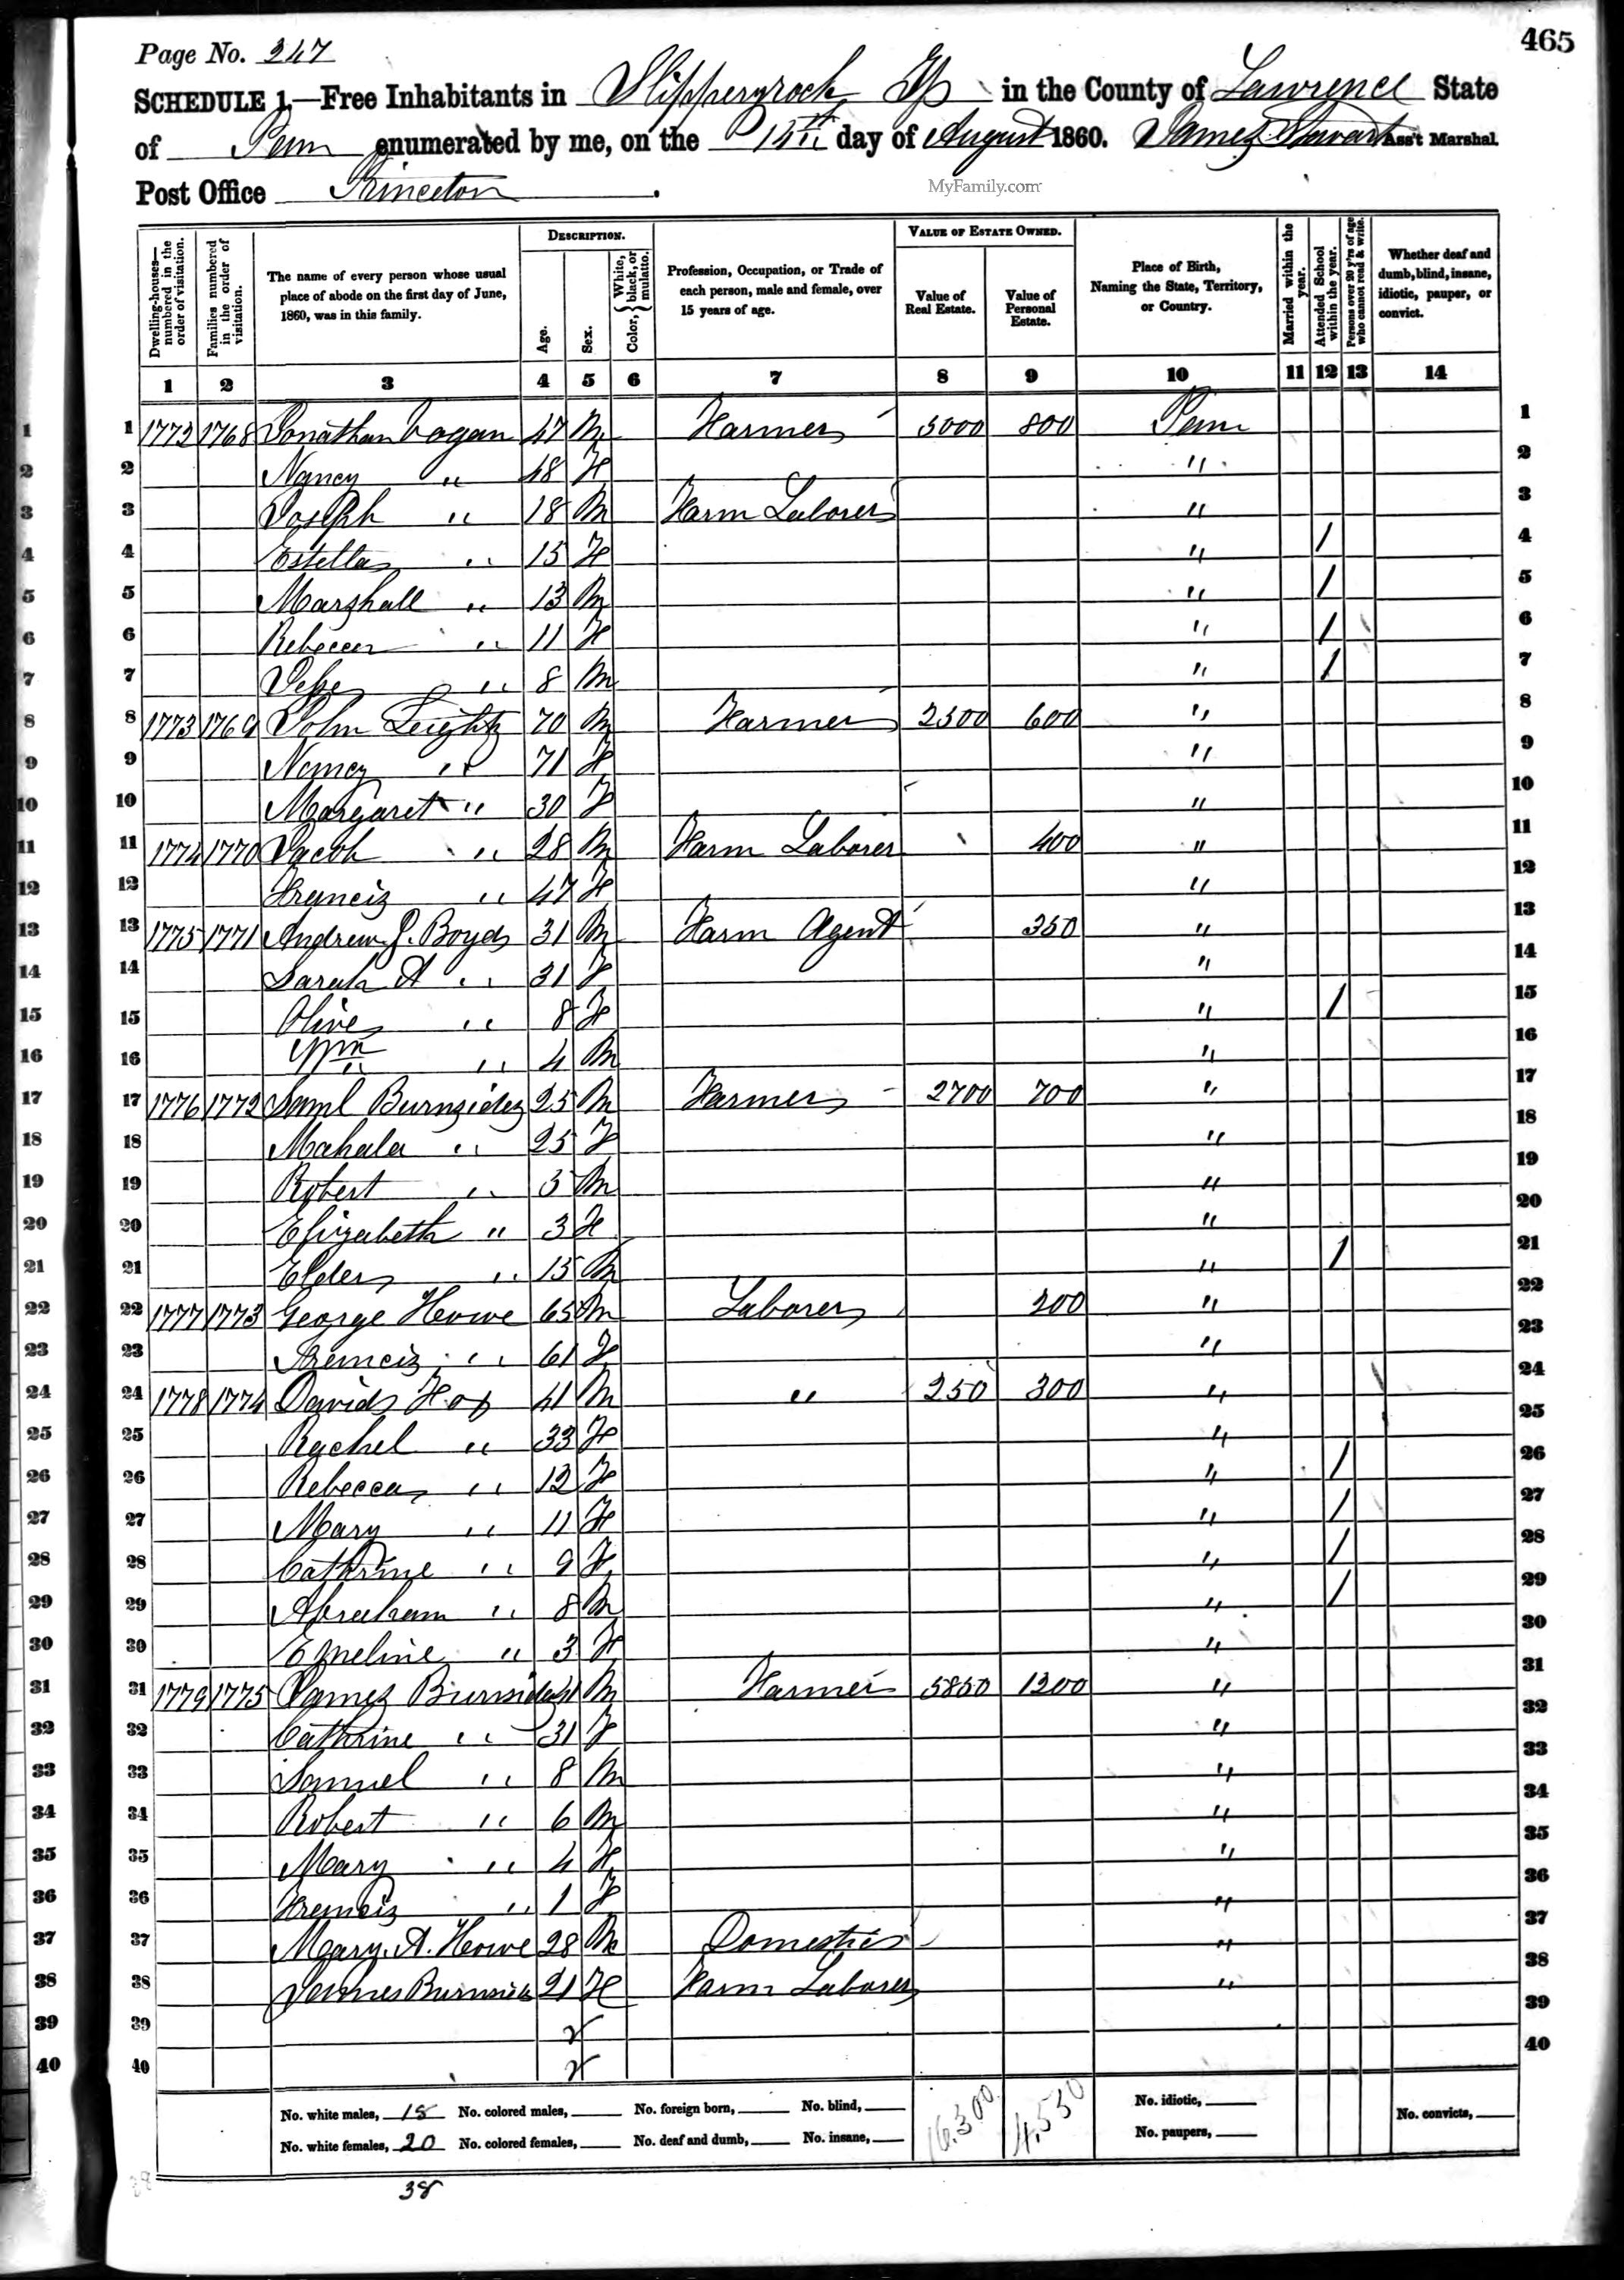 465
Page No. 247
SCHEDULE 1.—Free Inhabitants in Slipperyrock Tp in the County of Lawrence State
of Penn enumerated by me, on the 15th day of August 1860. James Stewart Ass't Marshal.
Post Office Princeton.
MyFamily.com
Dwelling-houses—numbered in the order of visitation.
Families numbered in the order of visitation.
The name of every person whose usual place of abode on the first day of June, 1860, was in this family.
DESCRIPTION.
Age.
Sex.
Color, { White, black, or mulatto.
Profession, Occupation, or Trade of each person, male and female, over 15 years of age.
VALUE OF ESTATE OWNED.
Value of Real Estate.
Value of Personal Estate.
Place of Birth, Naming the State, Territory, or Country.
Married within the year.
Attended School within the year.
Persons over 20 y'rs of age who cannot read & write.
Whether deaf and dumb, blind, insane, idiotic, pauper, or convict.
1 2 3 4 5 6 7 8 9 10 11 12 13 14
1 1772 1768 Jonathan Vogan 47 M Farmer 5000 800 Penn 1
2 Nancy " 48 F " 2
3 Joseph " 18 M Farm Laborer " 3
4 Estella " 15 F " / 4
5 Marshall " 13 M " / 5
6 Rebecca " 11 F " / 6
7 Jesse " 8 M " / 7
8 1773 1769 John Leighty 70 M Farmer 2500 600 " 8
9 Nancy " 71 F " 9
10 Margaret " 30 F " 10
11 1774 1770 Jacob " 28 M Farm Laborer 400 " 11
12 Francis " 47 F " 12
13 1775 1771 Andrew J. Boyd 31 M Farm Agent 350 " 13
14 Sarah A " 31 F " 14
15 Olive " 8 F " / 15
16 Wm " 4 M " 16
17 1776 1772 Saml Burnsides 25 M Farmer 2700 700 " 17
18 Mahala " 25 F " 18
19 Robert " 5 M " 19
20 Elizabeth " 3 F " 20
21 Elder " 15 M " / 21
22 1777 1773 George Howe 65 M Laborer 200 " 22
23 Francis " 61 F " 23
24 1778 1774 David 41 M " 250 300 " 24
25 Rachel " 33 F " 25
26 Rebecca " 12 F " / 26
27 Mary " 11 F " / 27
28 Cathrine " 9 F " / 28
29 Abraham " 8 M " / 29
30 Emeline " 3 F " 30
31 1779 1775 James Burnside M Farmer 5850 1200 " 31
32 Cathrine " 31 F " 32
33 Samuel " 8 M " 33
34 Robert " 6 M " 34
35 Mary " 4 F " 35
36 Francis " 1 F " 36
37 Mary. A. Howe 28 M Domestic " 37
38 James Burnside 21 F Farm Laborer " 38
39 39
40 40
No. white males, 18 No. colored males, No. foreign born, No. blind, 16,300 4,550 No. idiotic, No. convicts,
No. white females, 20 No. colored females, No. deaf and dumb, No. insane, No. paupers,
38